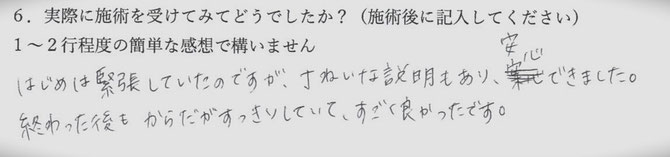 6．実際に施術を受けてみてどうでしたか？（施術後に記入してください）
1～2行程度の簡単な感想で構いません
はじめは緊張していたのですが、ていねいな説明もあり、安心できました。
終わった後も からだがすっきりしていて、すごく良かったです。